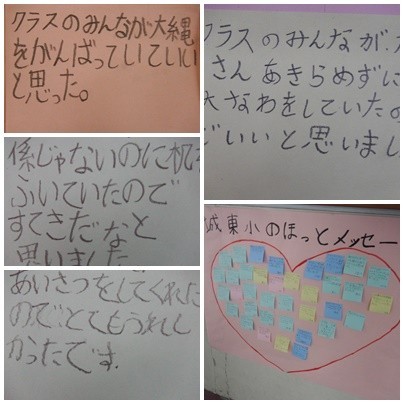 クラスのみんなが大縄
をがんばっていていい
と思った。
クラスのみんなが、
さん あきらめずに
大なわをしていたの
いいと思いまし
係じゃないのに机を
ふいていたので
すてきだなと
思いました
あいさつをしてくれた
ので、とてもうれし
かったです。
城東小のほっとメッセー